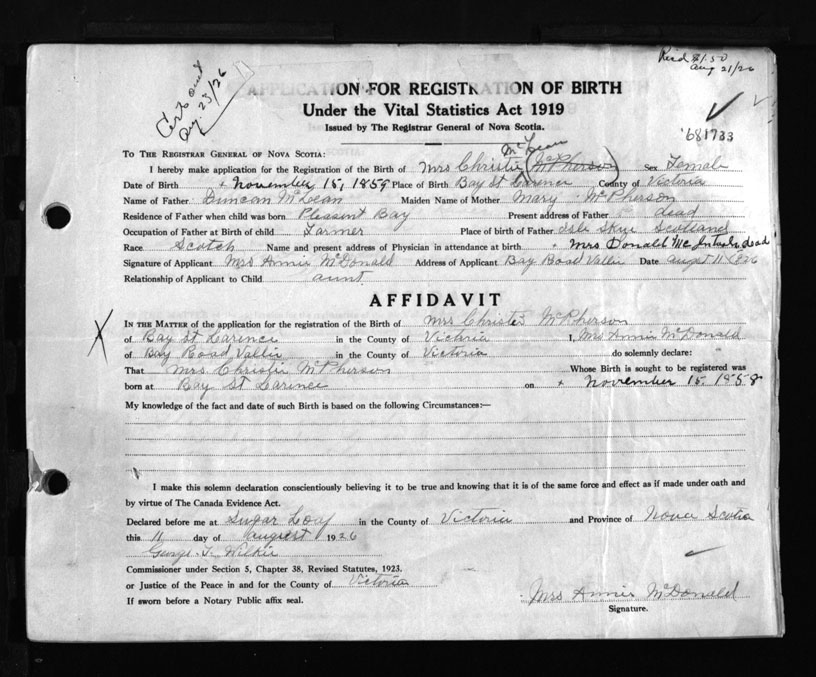 Recd $1.50
Aug 21/26
Cert out
Aug. 23/26
APPLICATION FOR REGISTRATION OF BIRTH
Under the Vital Statistics Act 1919
Issued by The Registrar General of Nova Scotia.
681733
TO THE REGISTRAR GENERAL OF NOVA SCOTIA:
McLean
I hereby make application for the Registration of the Birth of Mrs Christie (McPherson) Sex Female
Date of Birth + November 15, 1859 Place of Birth Bay St Larence County of Victoria
Name of Father Duncan McLean Maiden Name of Mother Mary McPherson
Residence of Father when child was born Plesent Bay Present address of Father dead
Occupation of Father at Birth of child Farmer Place of birth of Father Isle Skye Scotland
Race Scotch Name and present address of Physician in attendance at birth + Mrs Donald McIntosh dead
Signature of Applicant Mrs Annie McDonald Address of Applicant Bay Road Vallie Date August 11 1926
Relationship of Applicant to Child aunt
AFFIDAVIT
IN THE MATTER of the application for the registration of the Birth of Mrs Christie McPherson
of Bay St Larence in the County of Victoria I, Mrs Annie McDonald
of Bay Road Vallie in the County of Victoria do solemnly declare:
That Mrs Christie McPherson Whose Birth is sought to be registered was
born at Bay St Larence on + November 15, 1858
My knowledge of the fact and date of such Birth is based on the following Circumstances:—
I make this solemn declaration conscientiously believing it to be true and knowing that it is of the same force and effect as if made under oath and
by virtue of The Canada Evidence Act.
Declared before me at Sugar Loaf in the County of Victoria and Province of Nova Scotia
this 11 day of August 1926
George J. Wilkie
Commissioner under Section 5, Chapter 38, Revised Statutes, 1923.
or Justice of the Peace in and for the County of Victoria
If sworn before a Notary Public affix seal.
Mrs Annie McDonald
Signature.